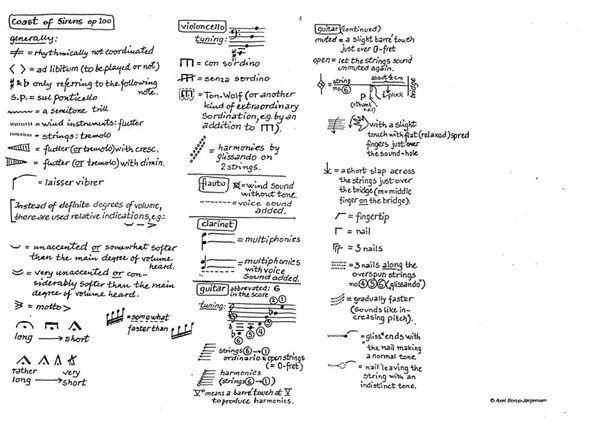 Coast of Sirens op 100
generally:
= rhythmically not coordinated
< > = ad libitum (to be played or not)
only referring to the following
note.
S.P. = sul ponticello
= a semitone trill
= wind instruments: flutter
= strings: tremolo
= flutter (or tremolo) with cresc.
= flutter (or tremolo) with dimin.
= laisser vibrer
Instead of definite degrees of volume,
there are used relative indications, e.g.:
= unaccented or somewhat softer
than the main degree of volume
heard.
= very unaccented or con-
siderably softer than the main
degree of volume heard.
= molto >
= somewhat
faster than
long → short
rather very
long → short
violoncello
tuning:
= con sordino
= senza sordino
= Ton-Wolf (or another
kind of extraordinary
Sordination, e.g. by an
addition to
).
= harmonics by
glissando on
2 strings.
flauto
= wind sound
without tone.
= voice sound
added.
clarinet
= multiphonics
= multiphonics
with voice
Sound added.
guitar abbrevated: G
in the score
tuning:
③ ② ①
⑥ ⑤ ④
strings ⑥ → ①
ordinario = open strings
(= 0-fret)
harmonics
(strings ⑥ → ①)
V° means a barré touch at V
to produce harmonics.
guitar (continued)
muted = a slight barré touch
just over 0-fret
open = let the strings sound
unmuted again.
= string
no. ⑥
about ½ cm
bridge
P
(= thumb
nail)
i-pluck
with a slight
touch with flat (relaxed) spred
fingers just over
the sound-hole
= a short slap across
the strings just over
the bridge (m = middle
finger on the bridge).
= fingertip
= nail
= 3 nails
= 3 nails along the
overspun strings
no ④ ⑤ ⑥ (glissando)
= gradually faster
(Sounds like in-
creasing pitch).
= gliss° ends with
the nail making
a normal tone
= nail leaving the
string with an
indistinct tone.
© Axel Borup-Jørgensen